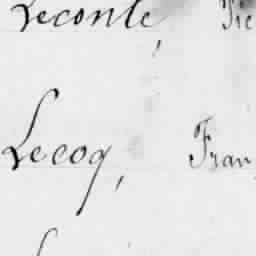 Leconte, Pie
Lecoq, Fran